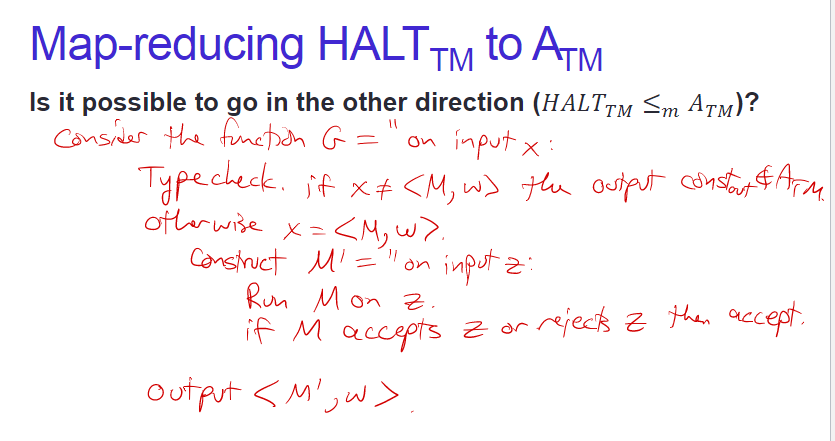 Map-reducing HALT_TM to A_TM
Is it possible to go in the other direction (HALT_TM ≤_m A_TM)?
Consider the function G = " on input x :
Typecheck. if x ≠ <M, w> the output const_out ∉ A_TM.
otherwise x = <M, w>.
Construct M' = " on input z :
Run M on z.
if M accepts z or rejects z then accept.
Output < M', w > .